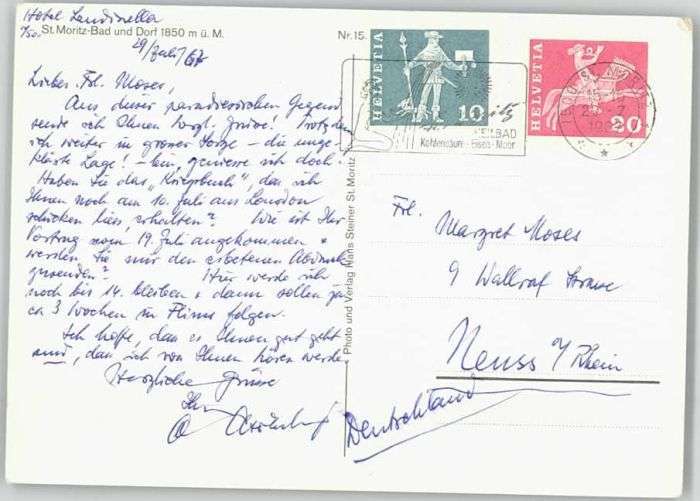 Hotel Laudinella
St. Moritz-Bad und Dorf 1850 m ü. M.
Nr. 15
29/Juli/67
Liebes Frl. Moses,
Aus dieser paradiesischen Gegend
sende ich Ihnen Grüsse! Trotzdem
ich weiter in grosser Sorge - die unge-
klärte Lage! - bin, geniesse ich doch.
Haben Sie das "Kriegsbuch", das ich
Ihnen noch am 10. Juli aus London
schicken liess, erhalten? Wie ist Ihr
Vortrag vom 19. Juli angekommen &
werden Sie mir den erbetenen Abdruck
zusenden? Hier werde ich
noch bis 14. bleiben & dann sollen ja
ca 3 Wochen in Flims folgen.
Ich hoffe, dass es Ihnen gut geht
und, dass ich von Ihnen hören werde.
Herzliche Grüsse
Ihr
Photo und Verlag Hans Steiner St. Moritz
HELVETIA
10
HELVETIA
20
HEILBAD
Kohlensäure - Eisen - Moor
Frl.
Margret Moses
9 Wallraf Strasse
Neuss a/Rhein
Deutschland